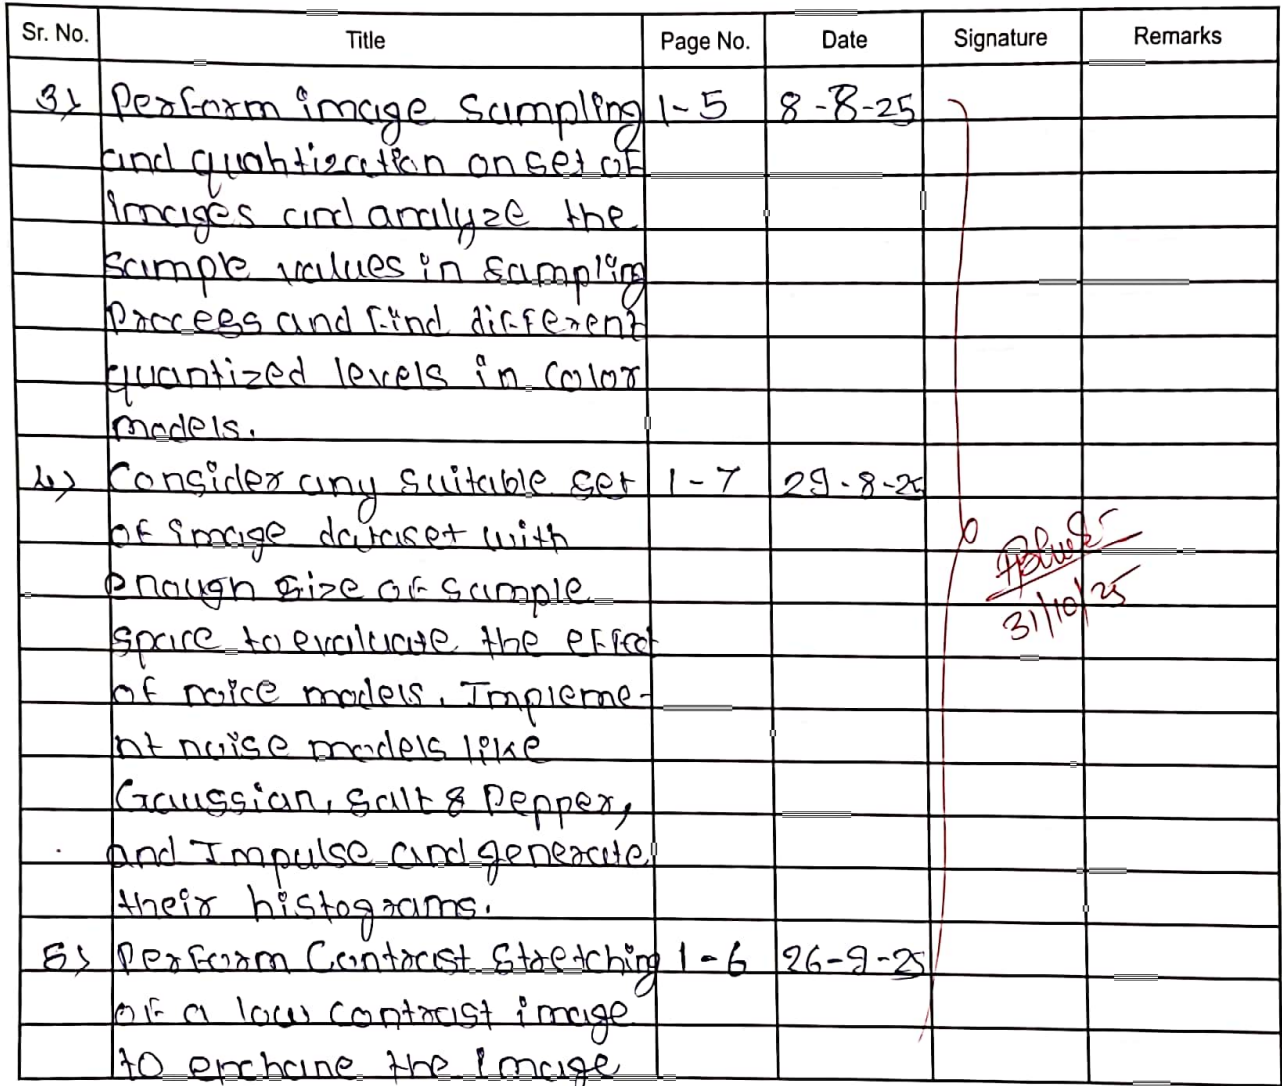 Sr. No. Title Page No. Date Signature Remarks
3) Perform image sampling 1-5 8-8-25
and quantization on set of
images and analyze the
sample values in sampling
Process and find different
quantized levels in color
models.
4) Consider any suitable set 1-7 29-8-25
of image dataset with
enough size of sample
31/10/25
space to evaluate the effect
of noice models. Impleme-
nt noise models like
Gaussian, salt & Pepper,
and Impulse and generate
their histograms.
5) Perform Contrast Stretching 1-6 26-9-25
of a low contrast image
to enchane the image